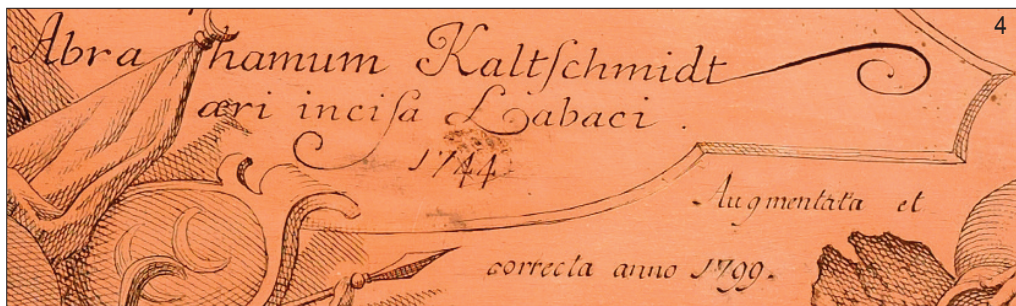 4
Abrahamum Kaltſchmidt
æri inciſa Labaci.
1744
Augmentata et
correcta anno 1799.